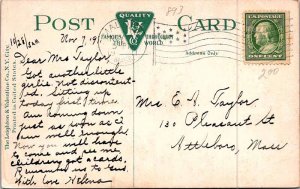 POST CARD
QUALITY
V
FAMOUS THROUGHOUT
THE WORLD
893
Address Only
ONE CENT
200
The Leighton & Valentine Co., N.Y. City.
Nov 7, 19
Dear Mrs Taylor,
Got another little
girlie. Not discontent-
ed. Sitting up
today first time
Am coming down
just as soon as I
am well enough.
Now you will have
to come and see me,
children got a cards.
Remember us to
With love Helena
Mrs. E. A. Taylor
120 Pleasant St
Attleboro, Mass